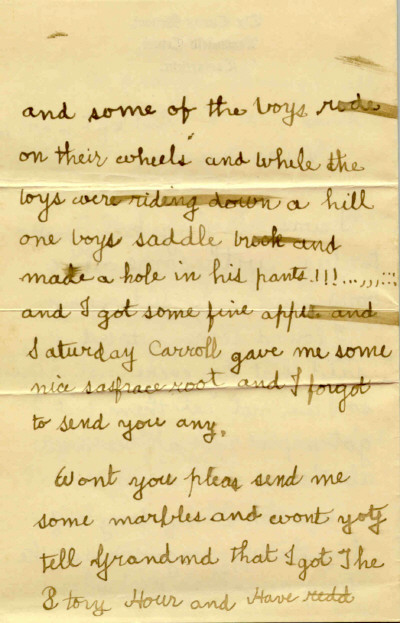 and some of the boys rode
on their wheels and while the
boys were riding down a hill
one boys saddle brock and
made a hole in his pants.!!!...,,,:::
and I got some fine appe. and
Saturday Carroll gave me some
nice sasfrace root and I forgot
to send you any.
Wont you pleas send me
some marbles and wont you
tell Grandmd that I got The
Story Hour and Have redd